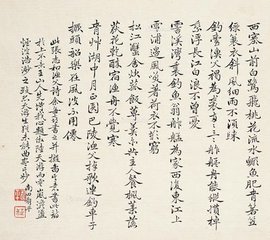 西塞山前白鷺飛桃花流水鱖魚肥青箬笠
綠蓑衣斜風細雨不須歸
釣臺漁父褐為裘兩兩三三舴艋舟能縱櫂慣
乘流長江白浪不曾憂
霅溪灣裏釣魚翁舴艋為家西復東江上
雪浦邊風笑著荷衣不歎窮
松江蟹舍主人歡菰飯蓴羹亦共餐楓葉落
荻花乾醉宿漁舟不覺寒
青草湖中月正圓巴陵漁父棹歌連釣車子
橛頭船樂在風波不用仙
此張志和漁父詩